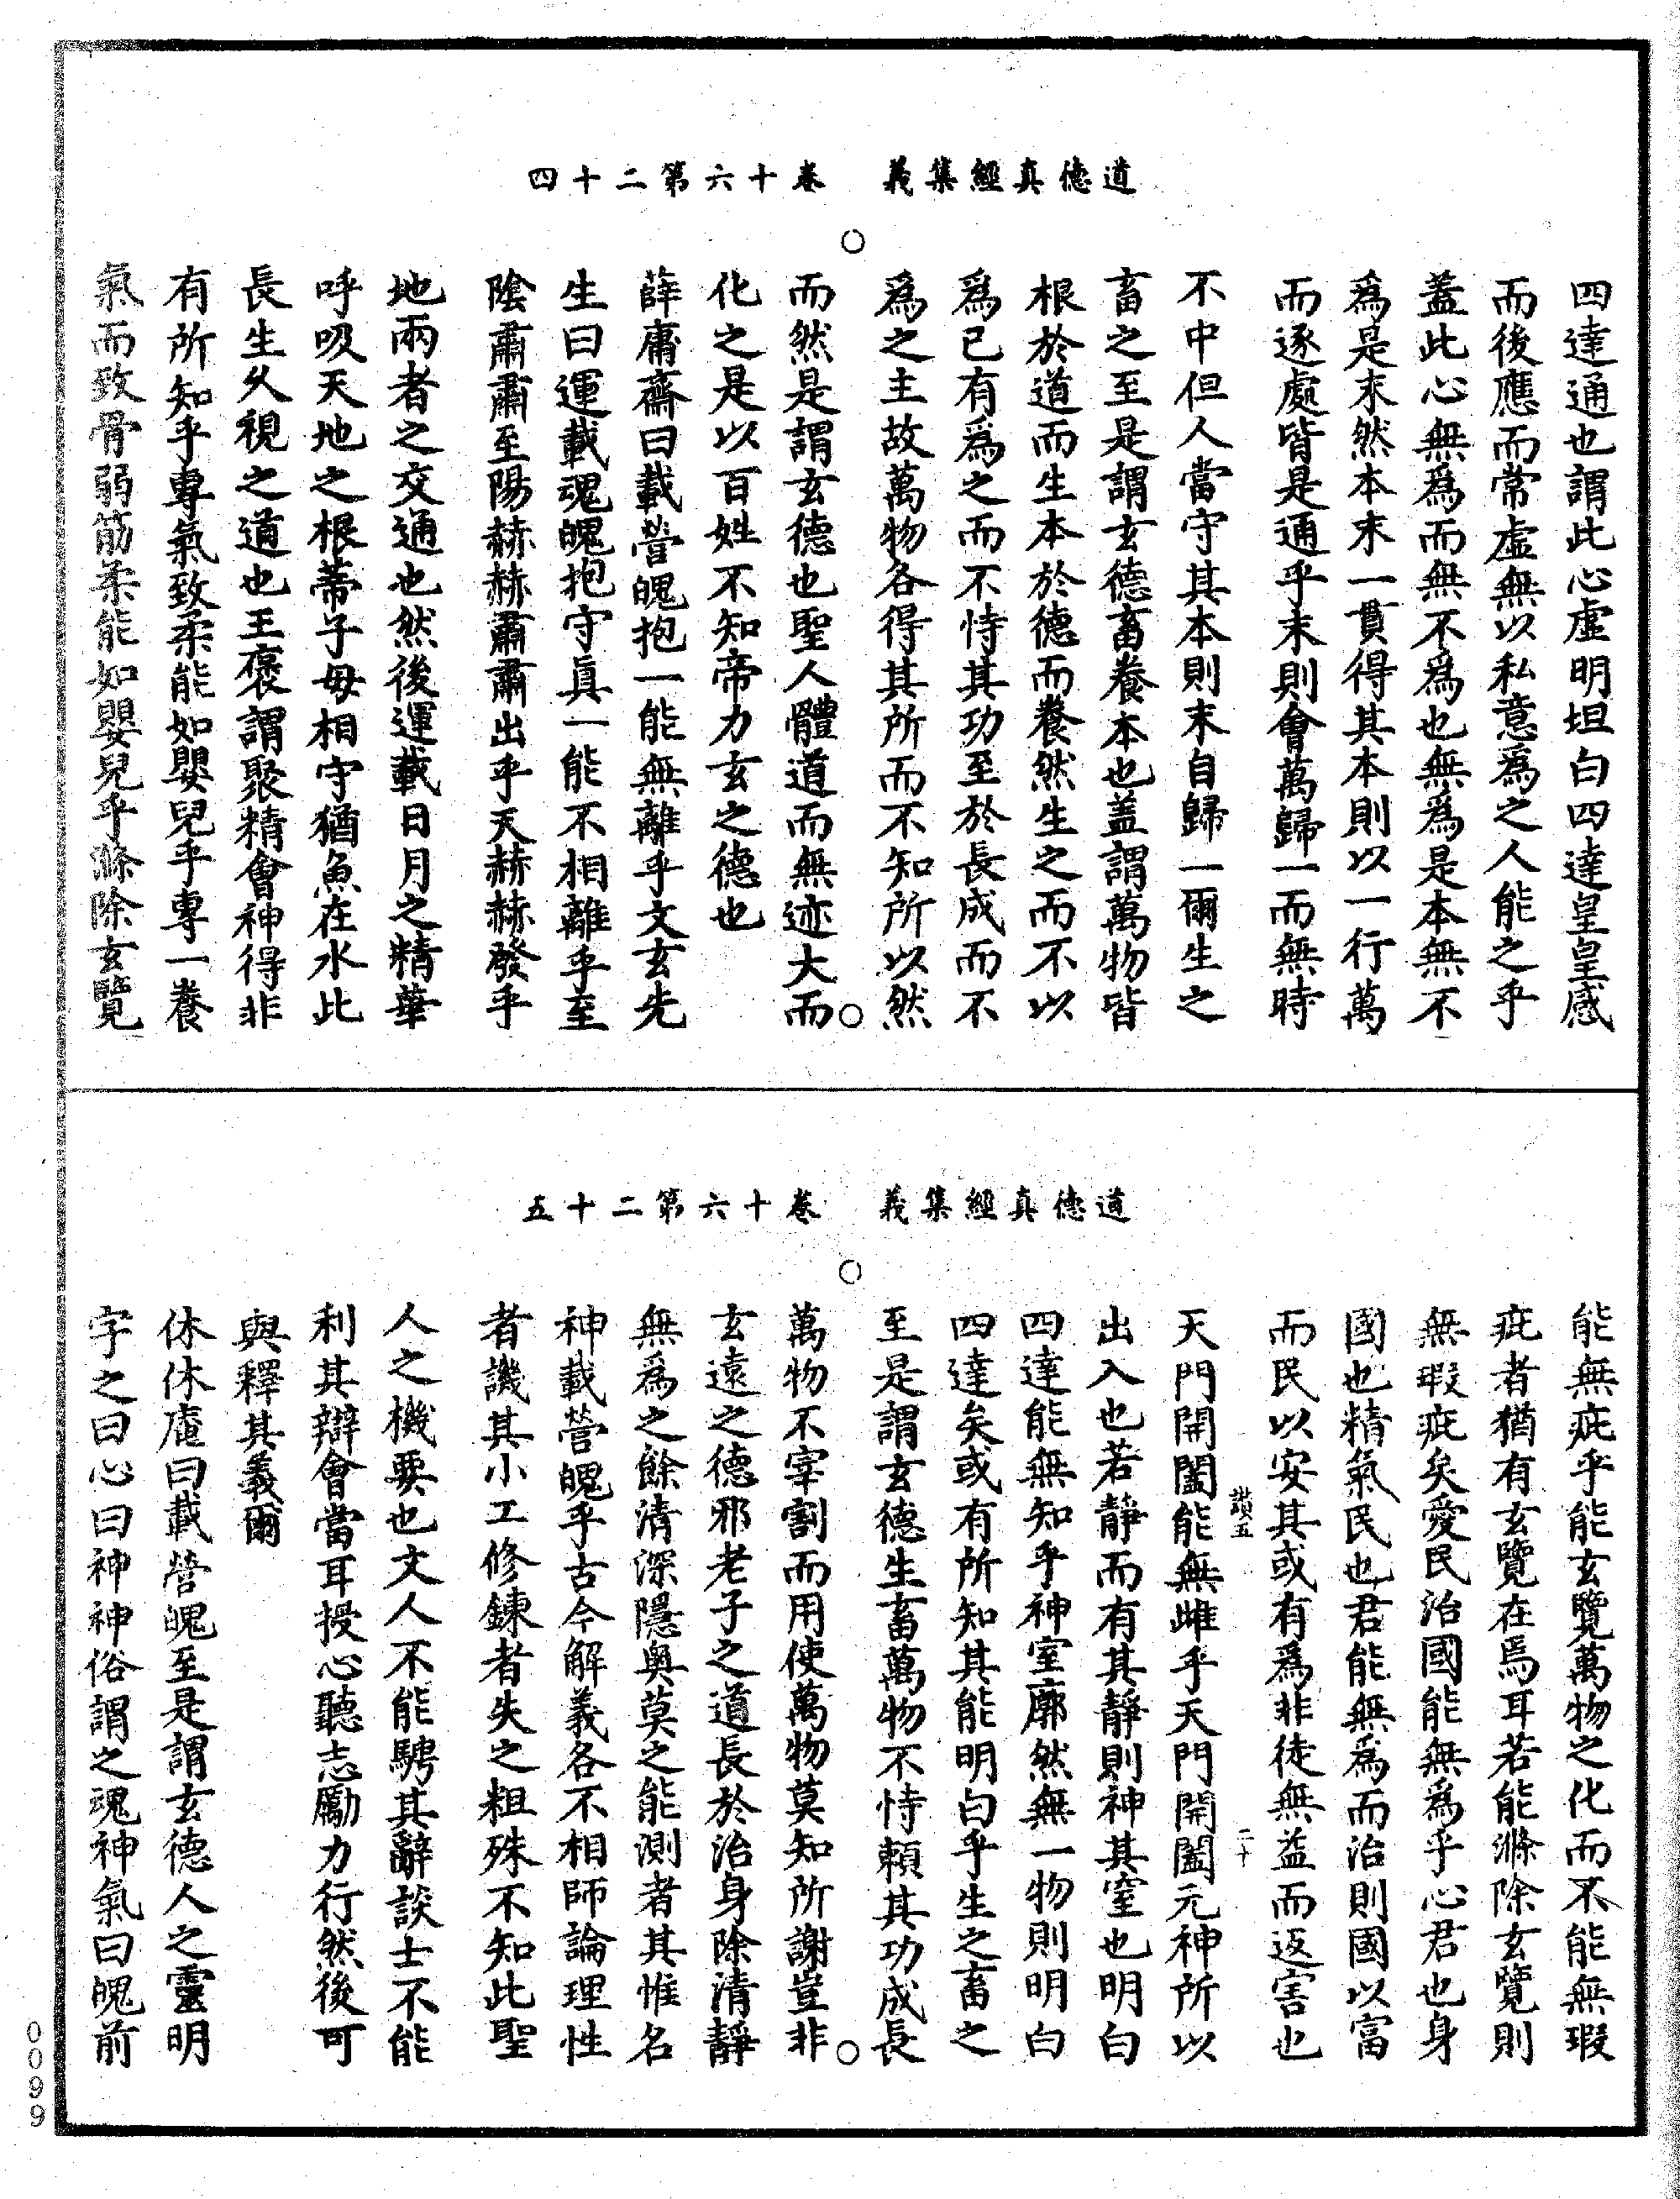 道德真經集義　卷十六第二十四
四達通也謂此心虛明坦白四達皇皇感
而後應而常虛無以私意爲之人能之乎
蓋此心無爲而無不爲也無爲是本無不
爲是末然本末一貫得其本則以一行萬
而逐處皆是通乎末則會萬歸一而無時
不中但人當守其本則末自歸一爾生之
畜之至是謂玄德畜養本也蓋謂萬物皆
根於道而生本於德而養然生之而不以
爲已有爲之而不恃其功至於長成而不
爲之主故萬物各得其所而不知所以然
而然是謂玄德也聖人體道而無迹大而
化之是以百姓不知帝力玄之德也
薛庸齋曰載營魄抱一能無離乎文玄先
生曰運載魂魄抱守真一能不相離乎至
陰肅肅至陽赫赫肅肅出乎天赫赫發乎
地兩者之交通也然後運載日月之精華
呼吸天地之根蒂子母相守猶魚在水此
長生久視之道也王褒謂聚精會神得非
有所知乎專氣致柔能如嬰兒乎專一養
氣而致骨弱筋柔能如嬰兒乎滌除玄覽
道德真經集義　卷十六第二十五
能無疵乎能玄覽萬物之化而不能無瑕
疵者猶有玄覽在焉耳若能滌除玄覽則
無瑕疵矣愛民治國能無爲乎心君也身
國也精氣民也君能無爲而治則國以富
而民以安其或有爲非徒無益而返害也
讃五　二十
天門開闔能無雌乎天門開闔元神所以
出入也若靜而有其靜則神其窒也明白
四達能無知乎神室廓然無一物則明白
四達矣或有所知其能明白乎生之畜之
至是謂玄德生畜萬物不恃賴其功成長
萬物不宰割而用使萬物莫知所謝豈非
玄遠之德邪老子之道長於治身除清靜
無爲之餘清深隱奧莫之能測者其惟名
神載營魄乎古今解義各不相師論理性
者譏其小工修鍊者失之粗殊不知此聖
人之機要也文人不能騁其辭談士不能
利其辯會當耳授心聽志勵力行然後可
與釋其義爾
休休庵曰載營魄至是謂玄德人之靈明
字之曰心曰神神俗謂之魂神氣曰魄前
0099